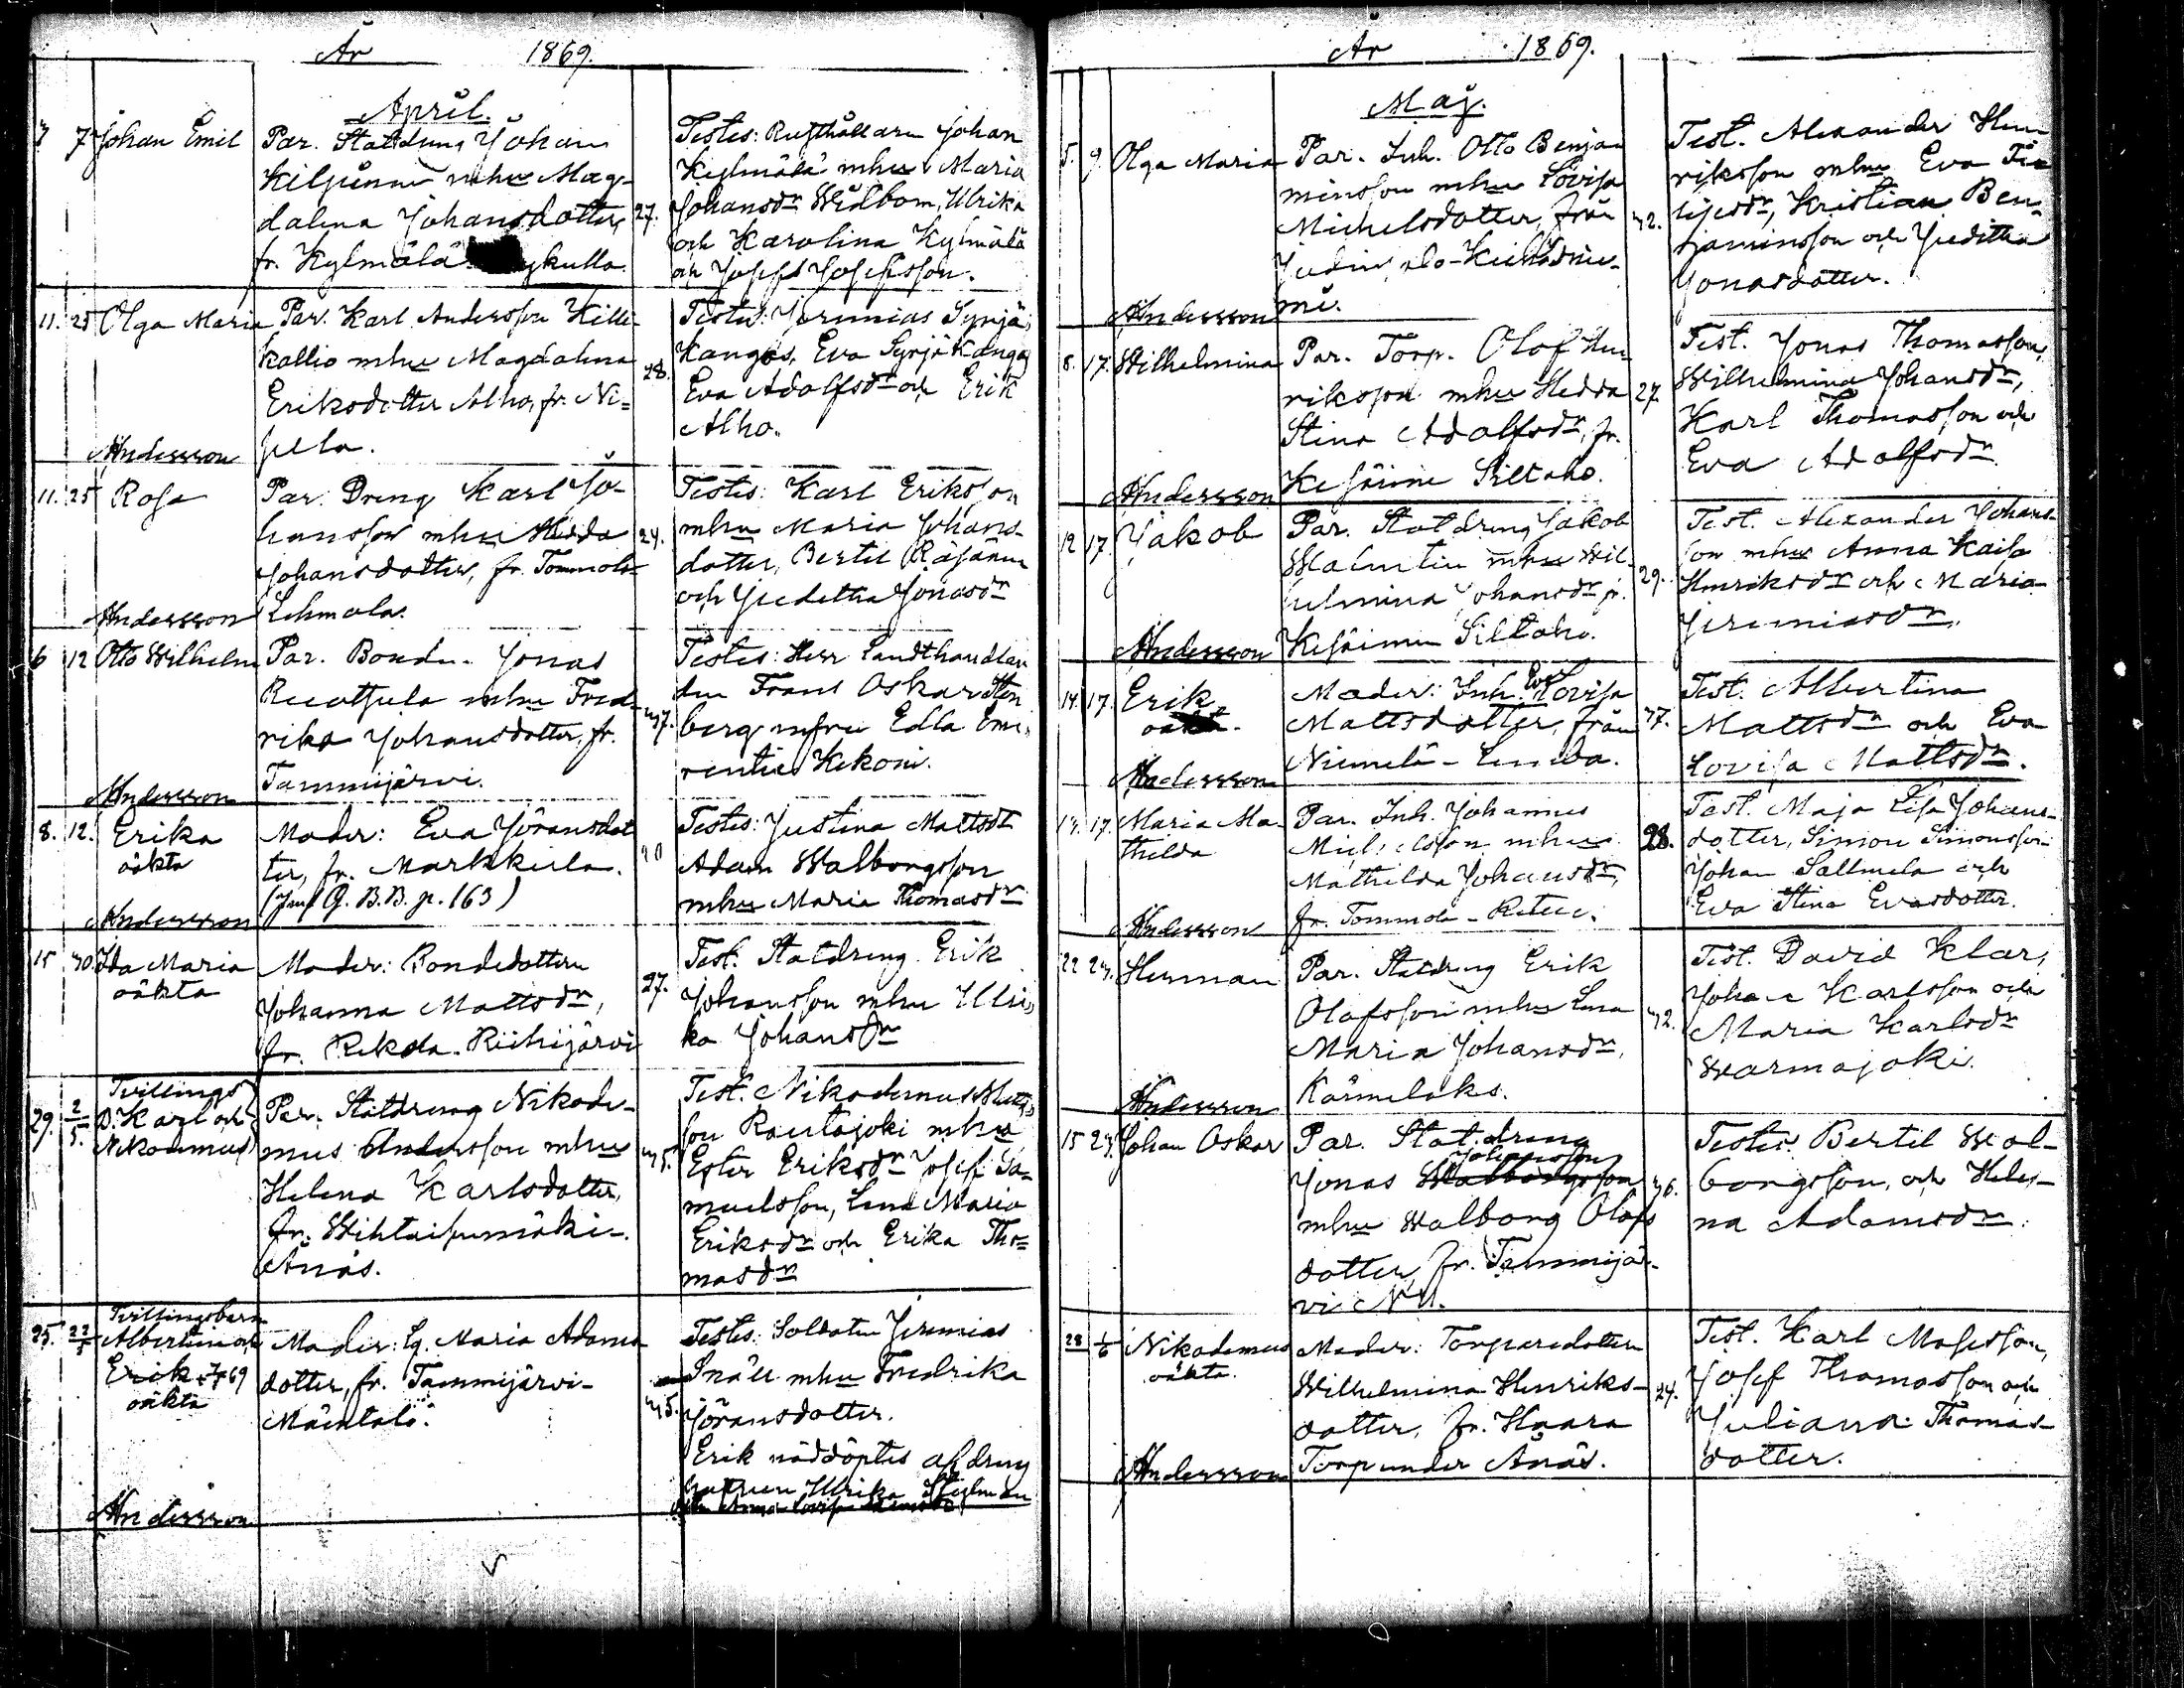 År 1869.
April.
7 7 Johan Emil
Par. Statdreng Johan
Kiljunen mhu Mag-
dalena Johansdotter,
fr. Kylmälä
27.
Testes: Rusthållaren Johan
Kylmälä mhu Maria
Johansdr Widbom, Ulrika
och Karolina Kylmälä
och Josef Josefsson.
11. 25 Olga Maria
Andersson
Par. Karl Andersson Kilki-
kallio mhu Magdalena
Eriksdotter Alho, fr. Ni=
pula.
28.
Testes: Jeremias Syrjä-
kangas, Eva Syrjäkangas
Eva Adolfsdr och Erik
Alho.
11. 25 Rosa
Andersson
Par. Dreng Karl Jo-
hansson mhu Hedda
Johansdotter, fr. Tommola-
Lehmola.
24.
Testes: Karl Eriksson
mhu Maria Johans-
dotter, Bertel Räsänen
och Juditha Jonasdr
6 12 Otto Wilhelm
Andersson
Par. Bonden Jonas
Ruotsula mhu Fred-
rika Johansdotter, fr.
Tammijärvi.
37.
Testes: Herr Landthandlan
den Frans Oskar Sten
berg mfru Edla Eme-
rentia Kekoni.
8. 12. Erika
oäkta
Andersson
Moder: Eva Jöransdot
ter, fr. Markkula.
(Jmf G. B.B. p. 163)
Testes: Justina Mattsdr
Adam Walborgsson
mhu Maria Thomasdr
15 30 Ida Maria
oäkta
Moder: Bondedottern
Johanna Mattsdr,
fr. Rekola-Riihijärvi
27.
Test. Statdreng Erik
Johansson mhu Ulri-
ka Johansdr
29. 2/5. Tvillings
b. Karl och
Nikodemus
Par. Statdreng Nikode-
mus Andersson mhu
Helena Karlsdotter,
fr. Wihtaisuomäki-
Ånäs.
35.
Test. Nikodemus Matts-
son Rautajoki mhu
Ester Eriksdr Josef Sa-
muelsson, Lena Maria
Eriksdr och Erika Tho=
masdr
25. 22/5 Tvillingsbarn
Albertina och
Erik + 7/7 69
oäkta
Andersson
Moder: Lg. Maria Adams
dotter, fr. Tammijärvi-
Mäentalo.
35.
Testes: Soldaten Jeremias
Snäll mhu Fredrika
Jöransdotter.
Erik nöddöptes af dreng
hustrun Ulrika Stylman
År 1869.
Maj.
5. 9. Olga Maria
Andersson
Par. Inh. Otto Benja-
minsson mhu Lovisa
Michelsdotter, från
mi.
32.
Test. Alexander Hen-
riksson mhu Eva
Kristian Ben-
jaminsson och Juditha
Jonasdotter.
8. 17. Wilhelmina
Andersson
Par. Torp. Olof Hen-
riksson mhu Hedda
Stina Adolfsdr, fr.
Kesäinen Siltaho.
27.
Test. Jonas Thomasson,
Wilhelmina Johansdr,
Karl Thomasson och
Eva Adolfsdr.
12 17. Jakob
Andersson
Par. Statdreng Jakob
Walentin mhu Wil-
helmina Johansdr fr.
Kesäinen Siltaho.
29.
Test. Alexander Johans-
son mhu Anna Kaisa
Henriksdr och Maria
Jeremiasdr.
14. 17. Erik
oäkta.
Andersson
Moder: Inh. Eva Lovisa
Mattsdotter, från
Niemelä-
37.
Test. Albertina
Mattsdr och Eva
Lovisa Mattsdr.
17. Maria Ma-
thilda
Andersson
Par. Inh. Johannes
Michelsson mhu
Mathilda Johansdr,
fr. Tommola-
28.
Test. Maja Lisa Johans-
dotter, Simon Simonsson
Johan Sallmela och
Eva Stina Evasdotter.
22 23. Herman
Andersson
Par. Statdreng Erik
Olofsson mhu Lena
Maria Johansdr,
Kärmelaks.
32.
Test. David Klar,
Johan Karlsson och
Maria Karlsdr
Warmajoki.
15 23. Johan Oskar
Par. Statdreng
Johansson
Jonas Walborgsson
mhu Walborg Olofs
dotter, fr. Tammijär-
vi
36.
Testes Bertel Wal-
borgsson, och Hele-
na Adamsdr.
28 1/6 Nikodemus
oäkta.
Andersson
Moder: Torparedottern
Wilhelmina Henriks-
dotter, fr. Haara
Torp under Ånäs.
24.
Test. Karl Mosesson,
Josef Thomasson och
Juliana Thomas-
dotter.